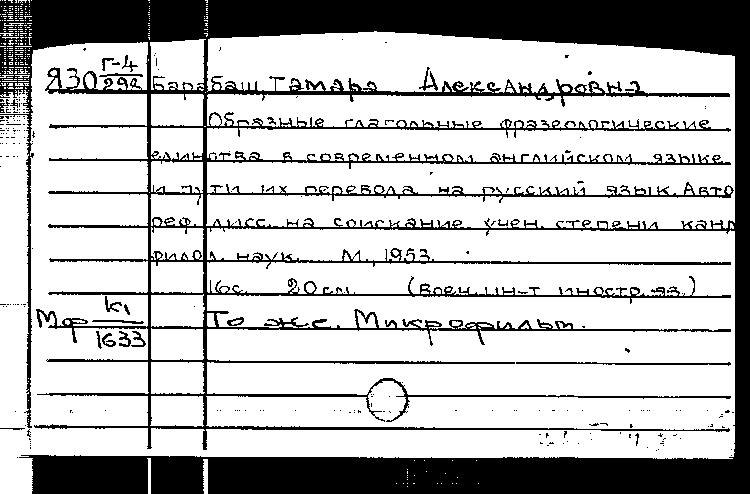 Я30 Г-4/292 Барабаш, Тамара Александровна
Образные глагольные фразеологические
единства в современном английском языке
и пути их перевода на русский язык. Авто
реф. дисс. на соискание учен. степени канд
филол. наук. М., 1953.
16с. 20см. (Воен. ин-т иностр. яз.)
Мф К1/1633 То же. Микрофильм.